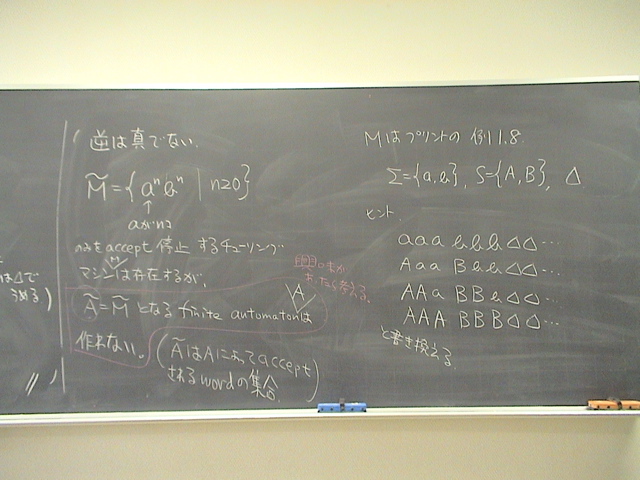 は△で
うめる)
逆は真でない.
M̃={aⁿbⁿ | n≥0}
↑
aがnコ
のみを accept 停止 するチューリング
マシンMは存在するが、
興味
考える.
A
Ã=M̃ となる finite automatonは
作れない。
(ÃはAによってaccept
されるwordの集合)
Mはプリントの 例11.8
Σ={a,b}, S={A,B}, △
ヒント
aaa bbb△△…
Aaa Bbb△△…
AAa BBb△△…
AAA BBB△△…
と書き換える.